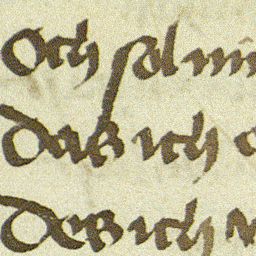 Och sol
Das ich
Des ich